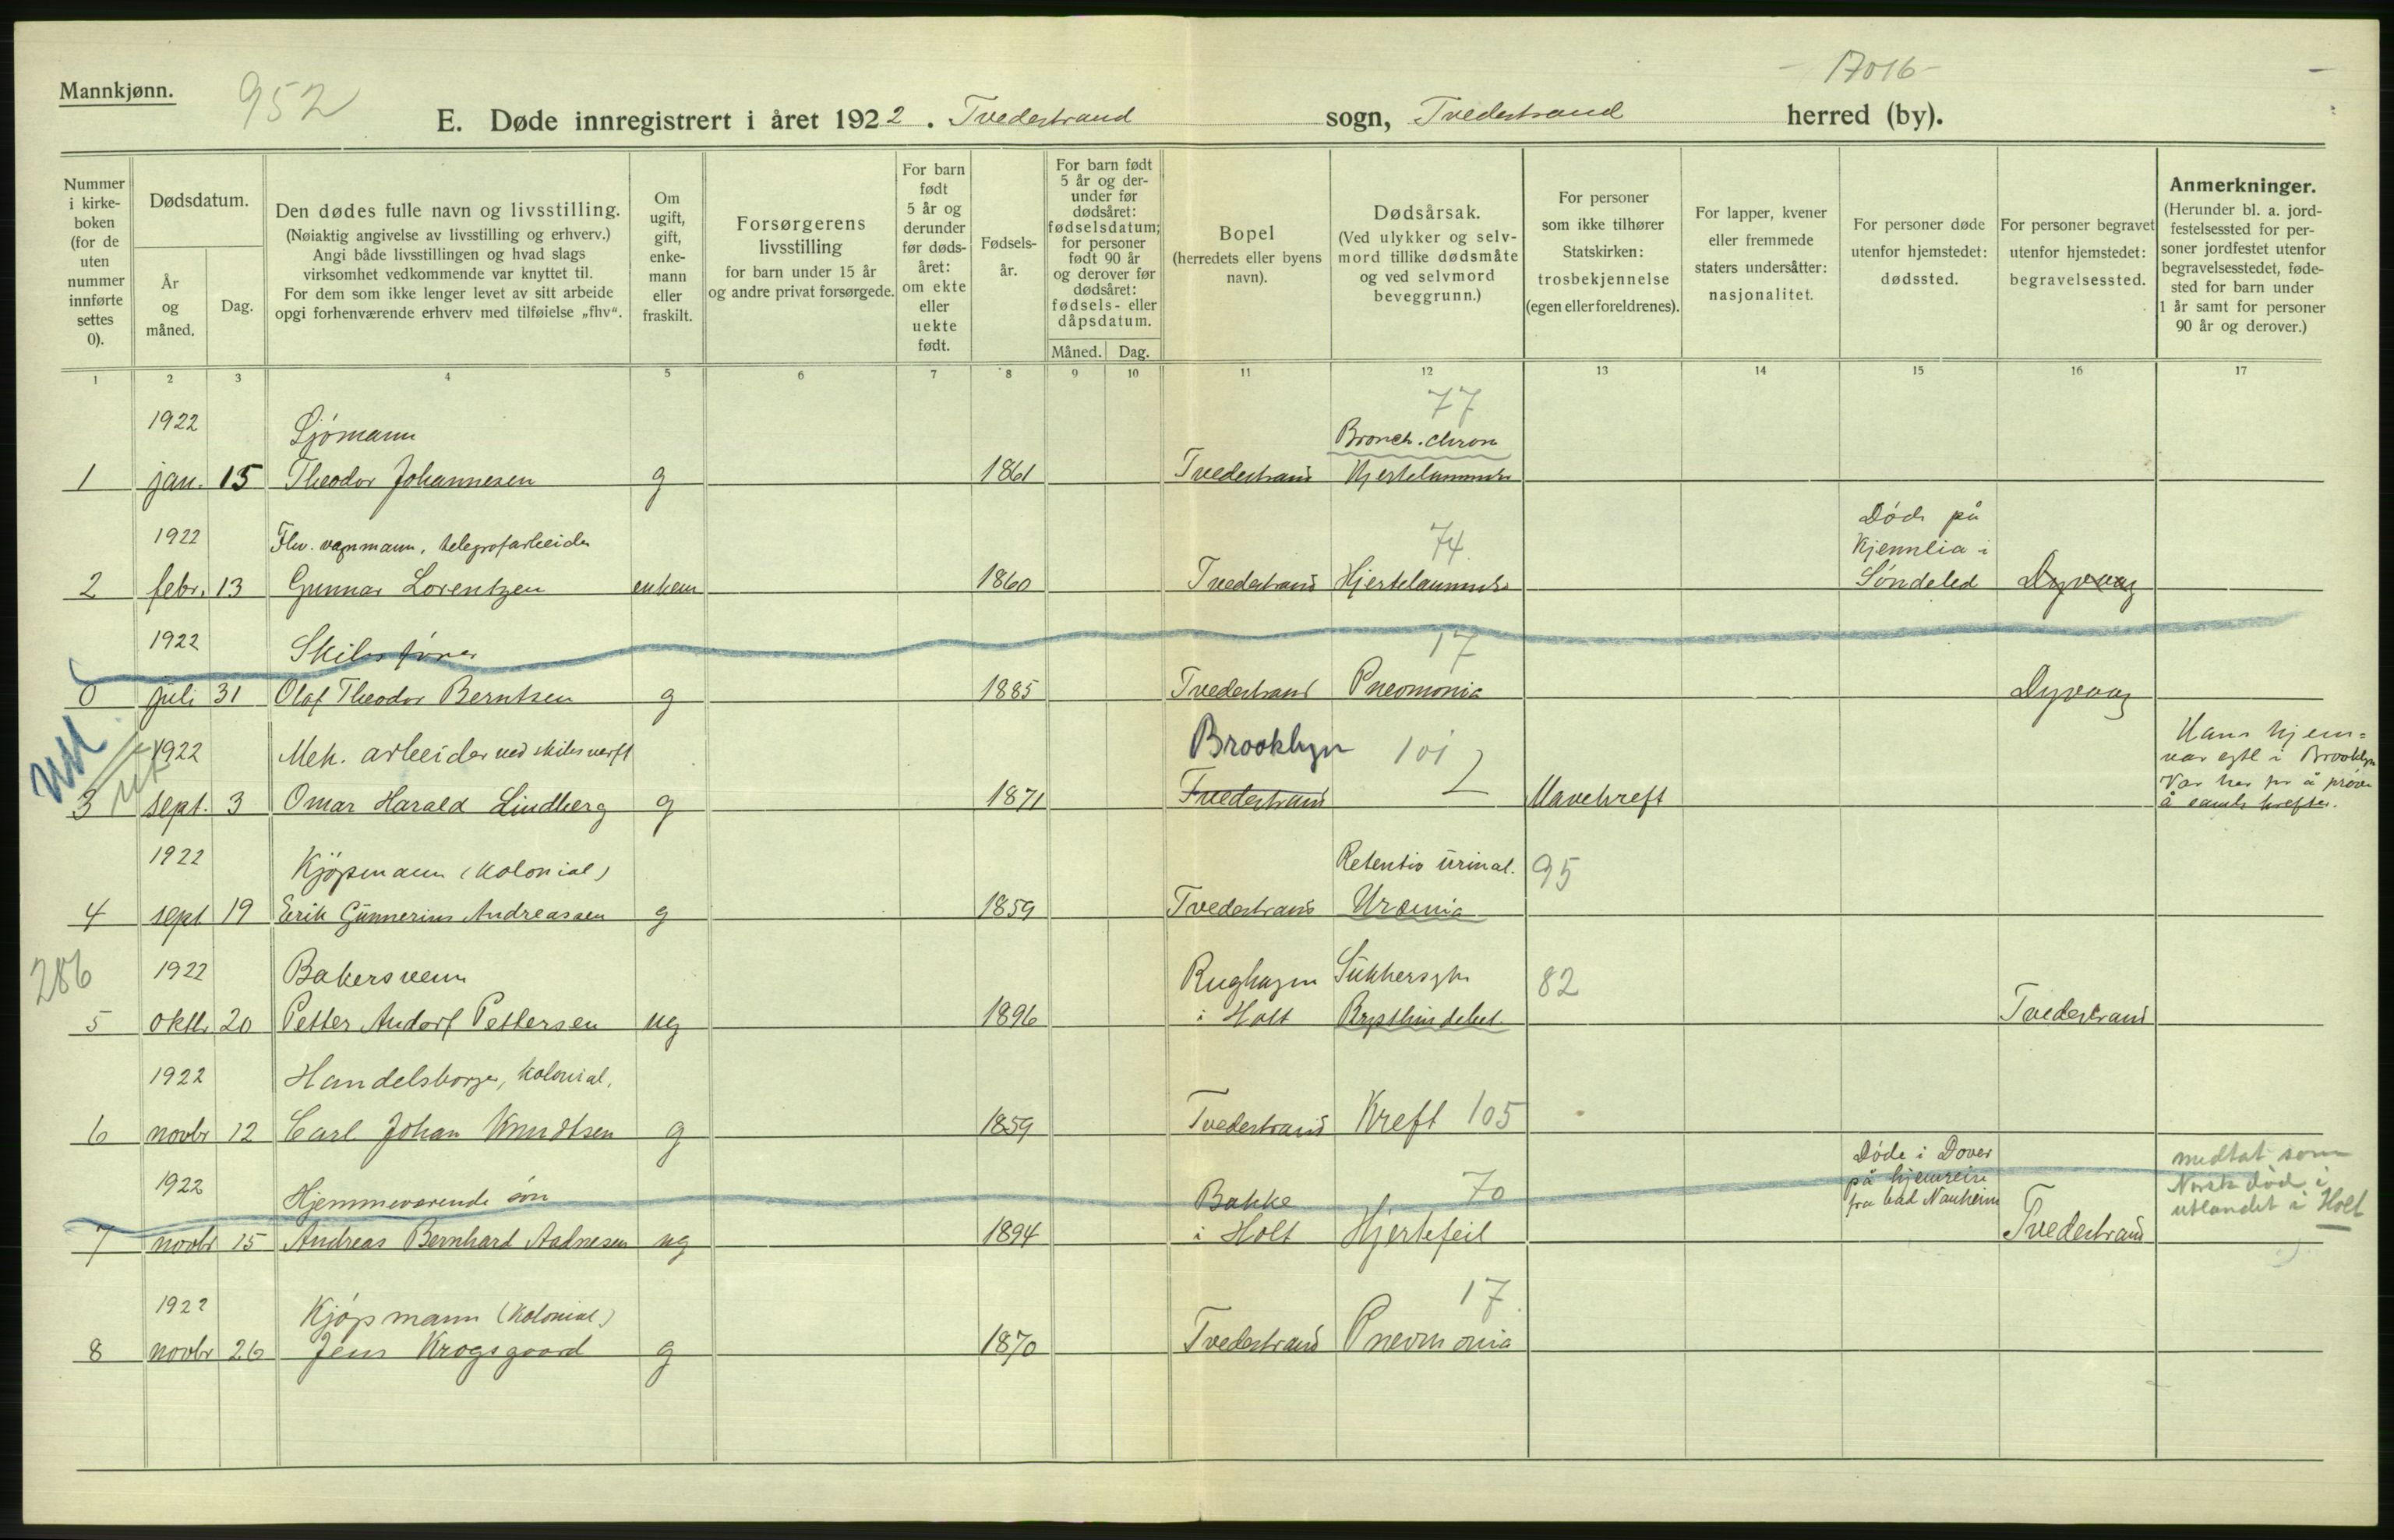 Mannkjønn.
952
17016
E. Døde innregistrert i året 1922. Tvedestrand sogn, Tvedestrand herred (by).
Nummer i kirke-boken (for de uten nummer innførte settes 0).
Dødsdatum.
År og måned.
Dag.
Den dødes fulle navn og livsstilling.
(Nøiaktig angivelse av livsstilling og erhverv.)
Angi både livsstillingen og hvad slags
virksomhet vedkommende var knyttet til.
For dem som ikke lenger levet av sitt arbeide
opgi forhenværende erhverv med tilføielse „fhv“.
Om ugift, gift, enke-mann eller fraskilt.
Forsørgerens livsstilling
for barn under 15 år
og andre privat forsørgede.
For barn født 5 år og derunder før døds-året: om ekte eller uekte født.
Fødsels-år.
For barn født 5 år og der-under før dødsåret: fødselsdatum; for personer født 90 år og derover før dødsåret: fødsels- eller dåpsdatum.
Måned. Dag.
Bopel
(herredets eller byens navn).
Dødsårsak.
(Ved ulykker og selv-mord tillike dødsmåte og ved selvmord beveggrunn.)
For personer som ikke tilhører Statskirken: trosbekjennelse (egen eller foreldrenes).
For lapper, kvener eller fremmede staters undersåtter: nasjonalitet.
For personer døde utenfor hjemstedet: dødssted.
For personer begravet utenfor hjemstedet: begravelsessted.
Anmerkninger.
(Herunder bl. a. jord-festelsessted for per-soner jordfestet utenfor begravelsesstedet, føde-sted for barn under 1 år samt for personer 90 år og derover.)
1 2 3 4 5 6 7 8 9 10 11 12 13 14 15 16 17
77
1922 Sjömann Bronch. chron
1 jan. 15 Theodor Johannesen g 1861 Tvedestrand Hjertelammelse
Död på
1922 Fhv. vognmann, telegrafarbeider 74 Kjennlia i
2 febr. 13 Gunnar Lorentzen enkem 1860 Tvedestrand Hjertelammelse Söndeled Dyvaag
1922 Skibsförer 17
0 juli 31 Olaf Theodor Berntsen g 1885 Tvedestrand Pneomonia Dyvaag
1922 Mek. arbeider ved skibsverft Brooklyn 101 Hans hjem=
var egtl i Brooklyn
Var her for å pröve
3 sept. 3 Omar Harald Lindberg g 1871 Tvedestrand Mavekreft å samle krefter.
1922 Kjöpmann (kolonial) Retentio urinal. 95
4 sept 19 Erik Gunnerius Andreassen g 1859 Tvedestrand Uræmia
286
1922 Bakersvenn Rughagen Sukkersyke 82
5 oktbr 20 Petter Andorf Pettersen ug 1896 i Holt Brysthindebet. Tvedestrand
1922 Handelsborger, kolonial.
6 novbr 12 Carl Johan Knudtsen g 1859 Tvedestrand Kreft 105
Döde i Dover medtat som
1922 Hjemmeværende sön Bakke 70 på hjemreise Norsk död i
fra bad Nauheim utlandet i Holt
7 novbr 15 Andreas Bernhard Aadnesen ug 1894 i Holt Hjertefeil Tvedestrand
1922 Kjöpmann (Kolonial) 17
8 novbr 26 Jens Krogsgaard g 1870 Tvedestrand Pnevmonia